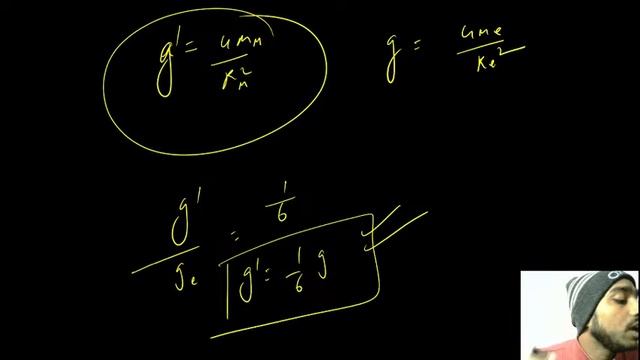 g' = GMm / Rm²
g = GMe / Re²
g' / ge = 1/6
g' = 1/6 g